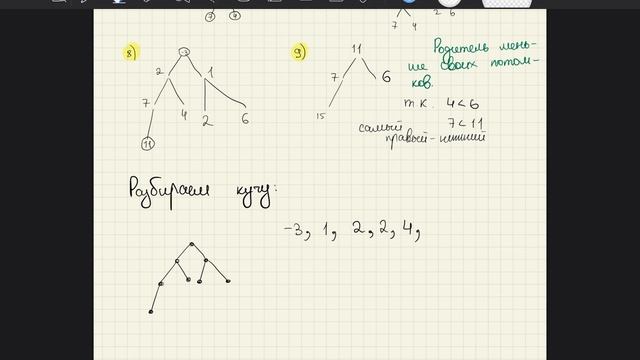 7 4
2 6
7 4
8)
-3
2 1
7 4 2 6
11
9)
11
7 6
15
Родитель мень-
ше своих потом-
ков.
т.к. 4<6
7<11
самый
правый-нижний
Разбираем кучу:
-3, 1, 2, 2, 4,